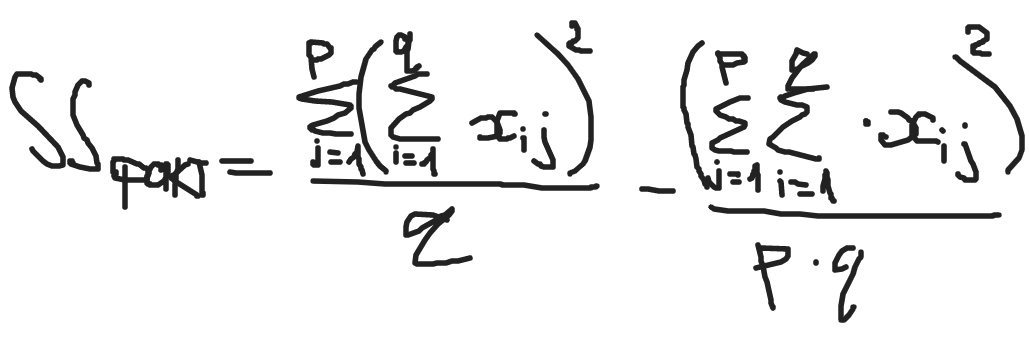 SS_{факт} = \frac{\sum_{j=1}^{p} \left( \sum_{i=1}^{q} x_{ij} \right)^2}{q} - \frac{\left( \sum_{j=1}^{p} \sum_{i=1}^{q} \cdot x_{ij} \right)^2}{p \cdot q}